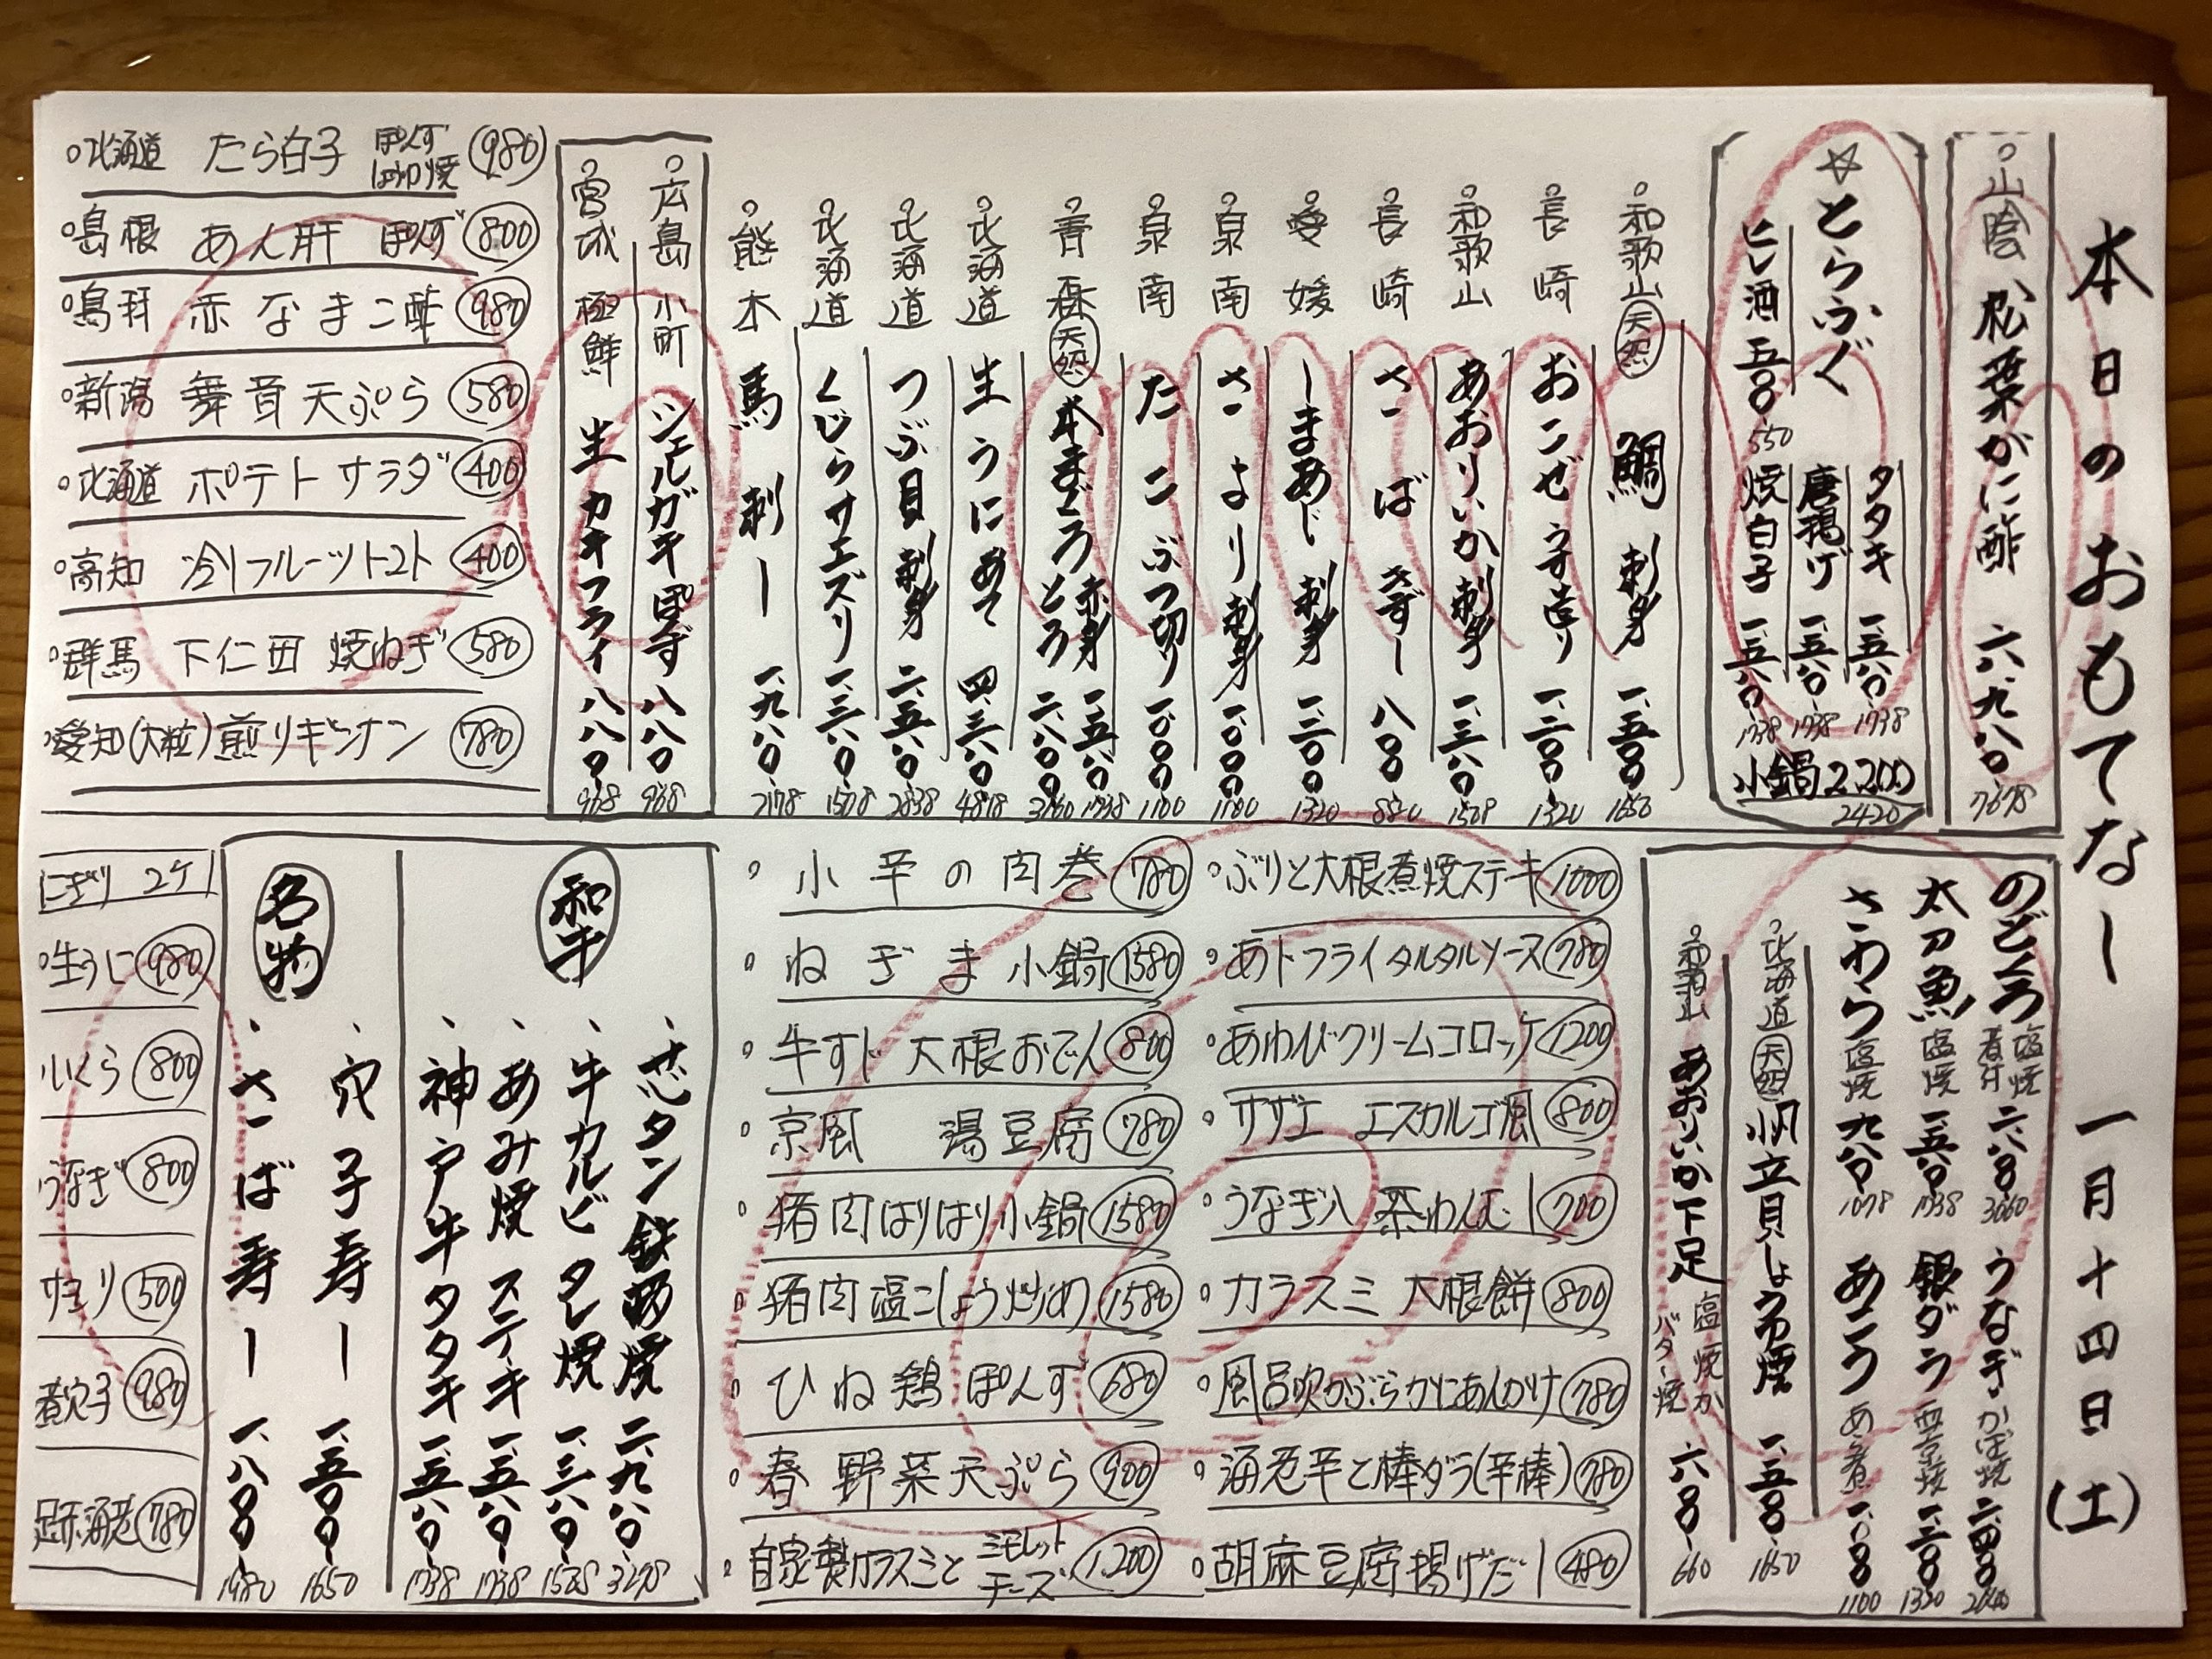 本日のおもてなし 一月十四日(土)
山陰 松葉がに酢 六、九八〇 7678
☆とらふぐ
タタキ 一、五八〇 1738
唐揚げ 一、五八〇 1738
ヒレ酒 五〇〇 550
焼白子 一、五八〇 1738
小鍋2200 2420
和歌山 天然 鯛 刺身 一、五〇〇 1650
長崎 おこぜ うす造り 一、二〇〇 1320
和歌山 あおりいか刺身 一、三八〇 1508
長崎 さば きずし 八〇〇 880
愛媛 しまあじ 刺身 一、二〇〇 1320
泉南 さより 刺身 一、〇〇〇 1100
泉南 たこ ぶつ切り 一、〇〇〇 1100
青森 天然 本まぐろ 赤身 一、五八〇 1738
とろ 二、八〇〇 3160
北海道 生うにあて 四、三八〇 4818
北海道 つぶ貝 刺身 二、五八〇 2838
北海道 くじらサエズリ 一、三八〇 1508
熊本 馬刺し 一、九八〇 2178
広島 小町 シェルガキ ぽず 八八〇 968
宮城 極鮮 生カキフライ 八八〇 968
北海道 たら白子 ぽんず ほうわ焼 980
島根 あん肝 ぽんず 800
鳥羽 赤なまこ酢 980
新潟 舞茸天ぷら 580
北海道 ポテトサラダ 400
高知 冷しフルーツトマト 400
群馬 下仁田 焼ねぎ 580
愛知(大粒)煎りギンナン 780
のどぐろ 塩焼 煮付 二、六八〇 3060
うなぎ かば焼 二、四〇〇 2640
太刀魚 塩焼 一、五八〇 1738
銀ダラ 西京焼 一、二〇〇 1320
さわら 塩焼 九八〇 1078
あこう あら煮 一、〇〇〇 1100
北海道 天然 帆立貝しょうゆ焼 一、五〇〇 1650
和歌山 あおりいか下足 塩焼か バター焼 六〇〇 660
ぶりと大根煮焼ステーキ 1000
あトフライタルタルソース 780
あわびクリームコロッケ 1200
サザエ エスカルゴ風 800
うなぎ入 茶わんむし 700
カラスミ 大根餅 800
風呂吹かぶらかにあんかけ 780
海老芋と棒ダラ(芋棒) 780
胡麻豆腐揚げだし 480
小芋の肉巻 780
ねぎま 小鍋 1580
牛すじ 大根おでん 800
京風 湯豆腐 780
猪肉はりはり小鍋 1580
猪肉塩こしょう炒め 1580
ひね鶏 ぽんず 680
春野菜天ぷら 900
自家製カラスミと ミモレットチーズ 1,200
和牛
芯タン鉄板焼 二、九八〇 3278
牛カルビタレ焼 一、三八〇 1508
あみ焼ステーキ 一、五八〇 1738
神戸牛タタキ 一、五八〇 1738
名物
穴子寿し 一、五〇〇 1650
さば寿し 一、八〇〇 1980
にぎり 2ケ
生うに 980
いくら 800
うなぎ 800
サヨリ 500
煮穴子 980
足赤海老 780